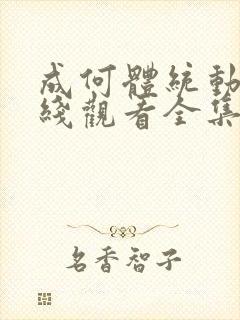 成何體統動
綫觀看全集
名香智子